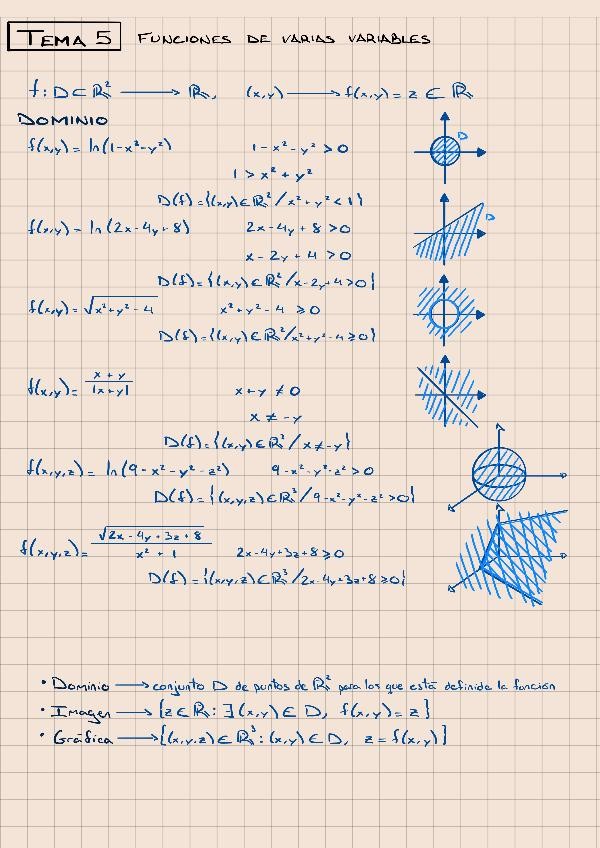 TEMA 5 FUNCIONES DE VARIAS VARIABLES
f: D ⊂ ℝ² ⟶ ℝ, (x,y) ⟶ f(x,y) = z ∈ ℝ
DOMINIO
f(x,y) = ln(1-x²-y²) 1-x²-y² > 0 D
1 > x² + y²
D(f) = {(x,y) ∈ ℝ² / x²+y² < 1}
f(x,y) = ln(2x-4y+8) 2x-4y+8 > 0 D
x-2y+4 > 0
D(f) = {(x,y) ∈ ℝ² / x-2y+4 > 0}
f(x,y) = √(x²+y²-4) x²+y²-4 ≥ 0
D(f) = {(x,y) ∈ ℝ² / x²+y²-4 ≥ 0}
f(x,y) = (x+y)/|x+y| x+y ≠ 0
x ≠ -y
D(f) = {(x,y) ∈ ℝ² / x ≠ -y}
f(x,y,z) = ln(9-x²-y²-z²) 9-x²-y²-z² > 0
D(f) = {(x,y,z) ∈ ℝ³ / 9-x²-y²-z² > 0}
f(x,y,z) = √(2x-4y+3z+8)/(x²+1) 2x-4y+3z+8 ≥ 0
D(f) = {(x,y,z) ∈ ℝ³ / 2x-4y+3z+8 ≥ 0}
• Dominio ⟶ conjunto D de puntos de ℝ² para los que está definida la función
• Imagen ⟶ {z ∈ ℝ : ∃(x,y) ∈ D, f(x,y) = z}
• Gráfica ⟶ {(x,y,z) ∈ ℝ³ : (x,y) ∈ D, z = f(x,y)}